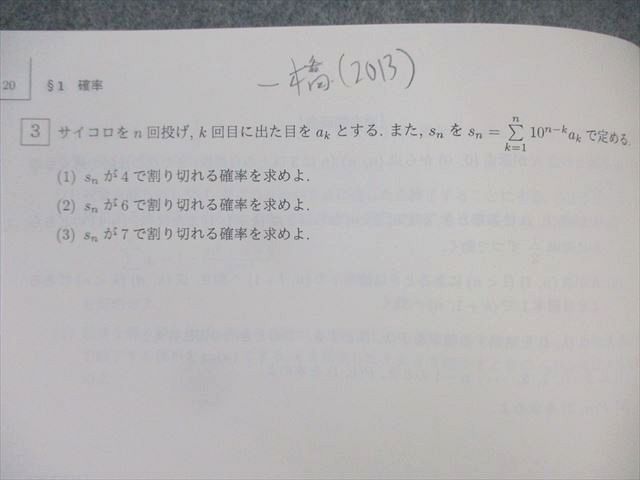 一橋(2013)
20 §1 確率
3 サイコロを n 回投げ, k 回目に出た目を a_k とする. また, s_n を s_n = \sum_{k=1}^{n} 10^{n-k} a_k で定める.
(1) s_n が 4 で割り切れる確率を求めよ.
(2) s_n が 6 で割り切れる確率を求めよ.
(3) s_n が 7 で割り切れる確率を求めよ.